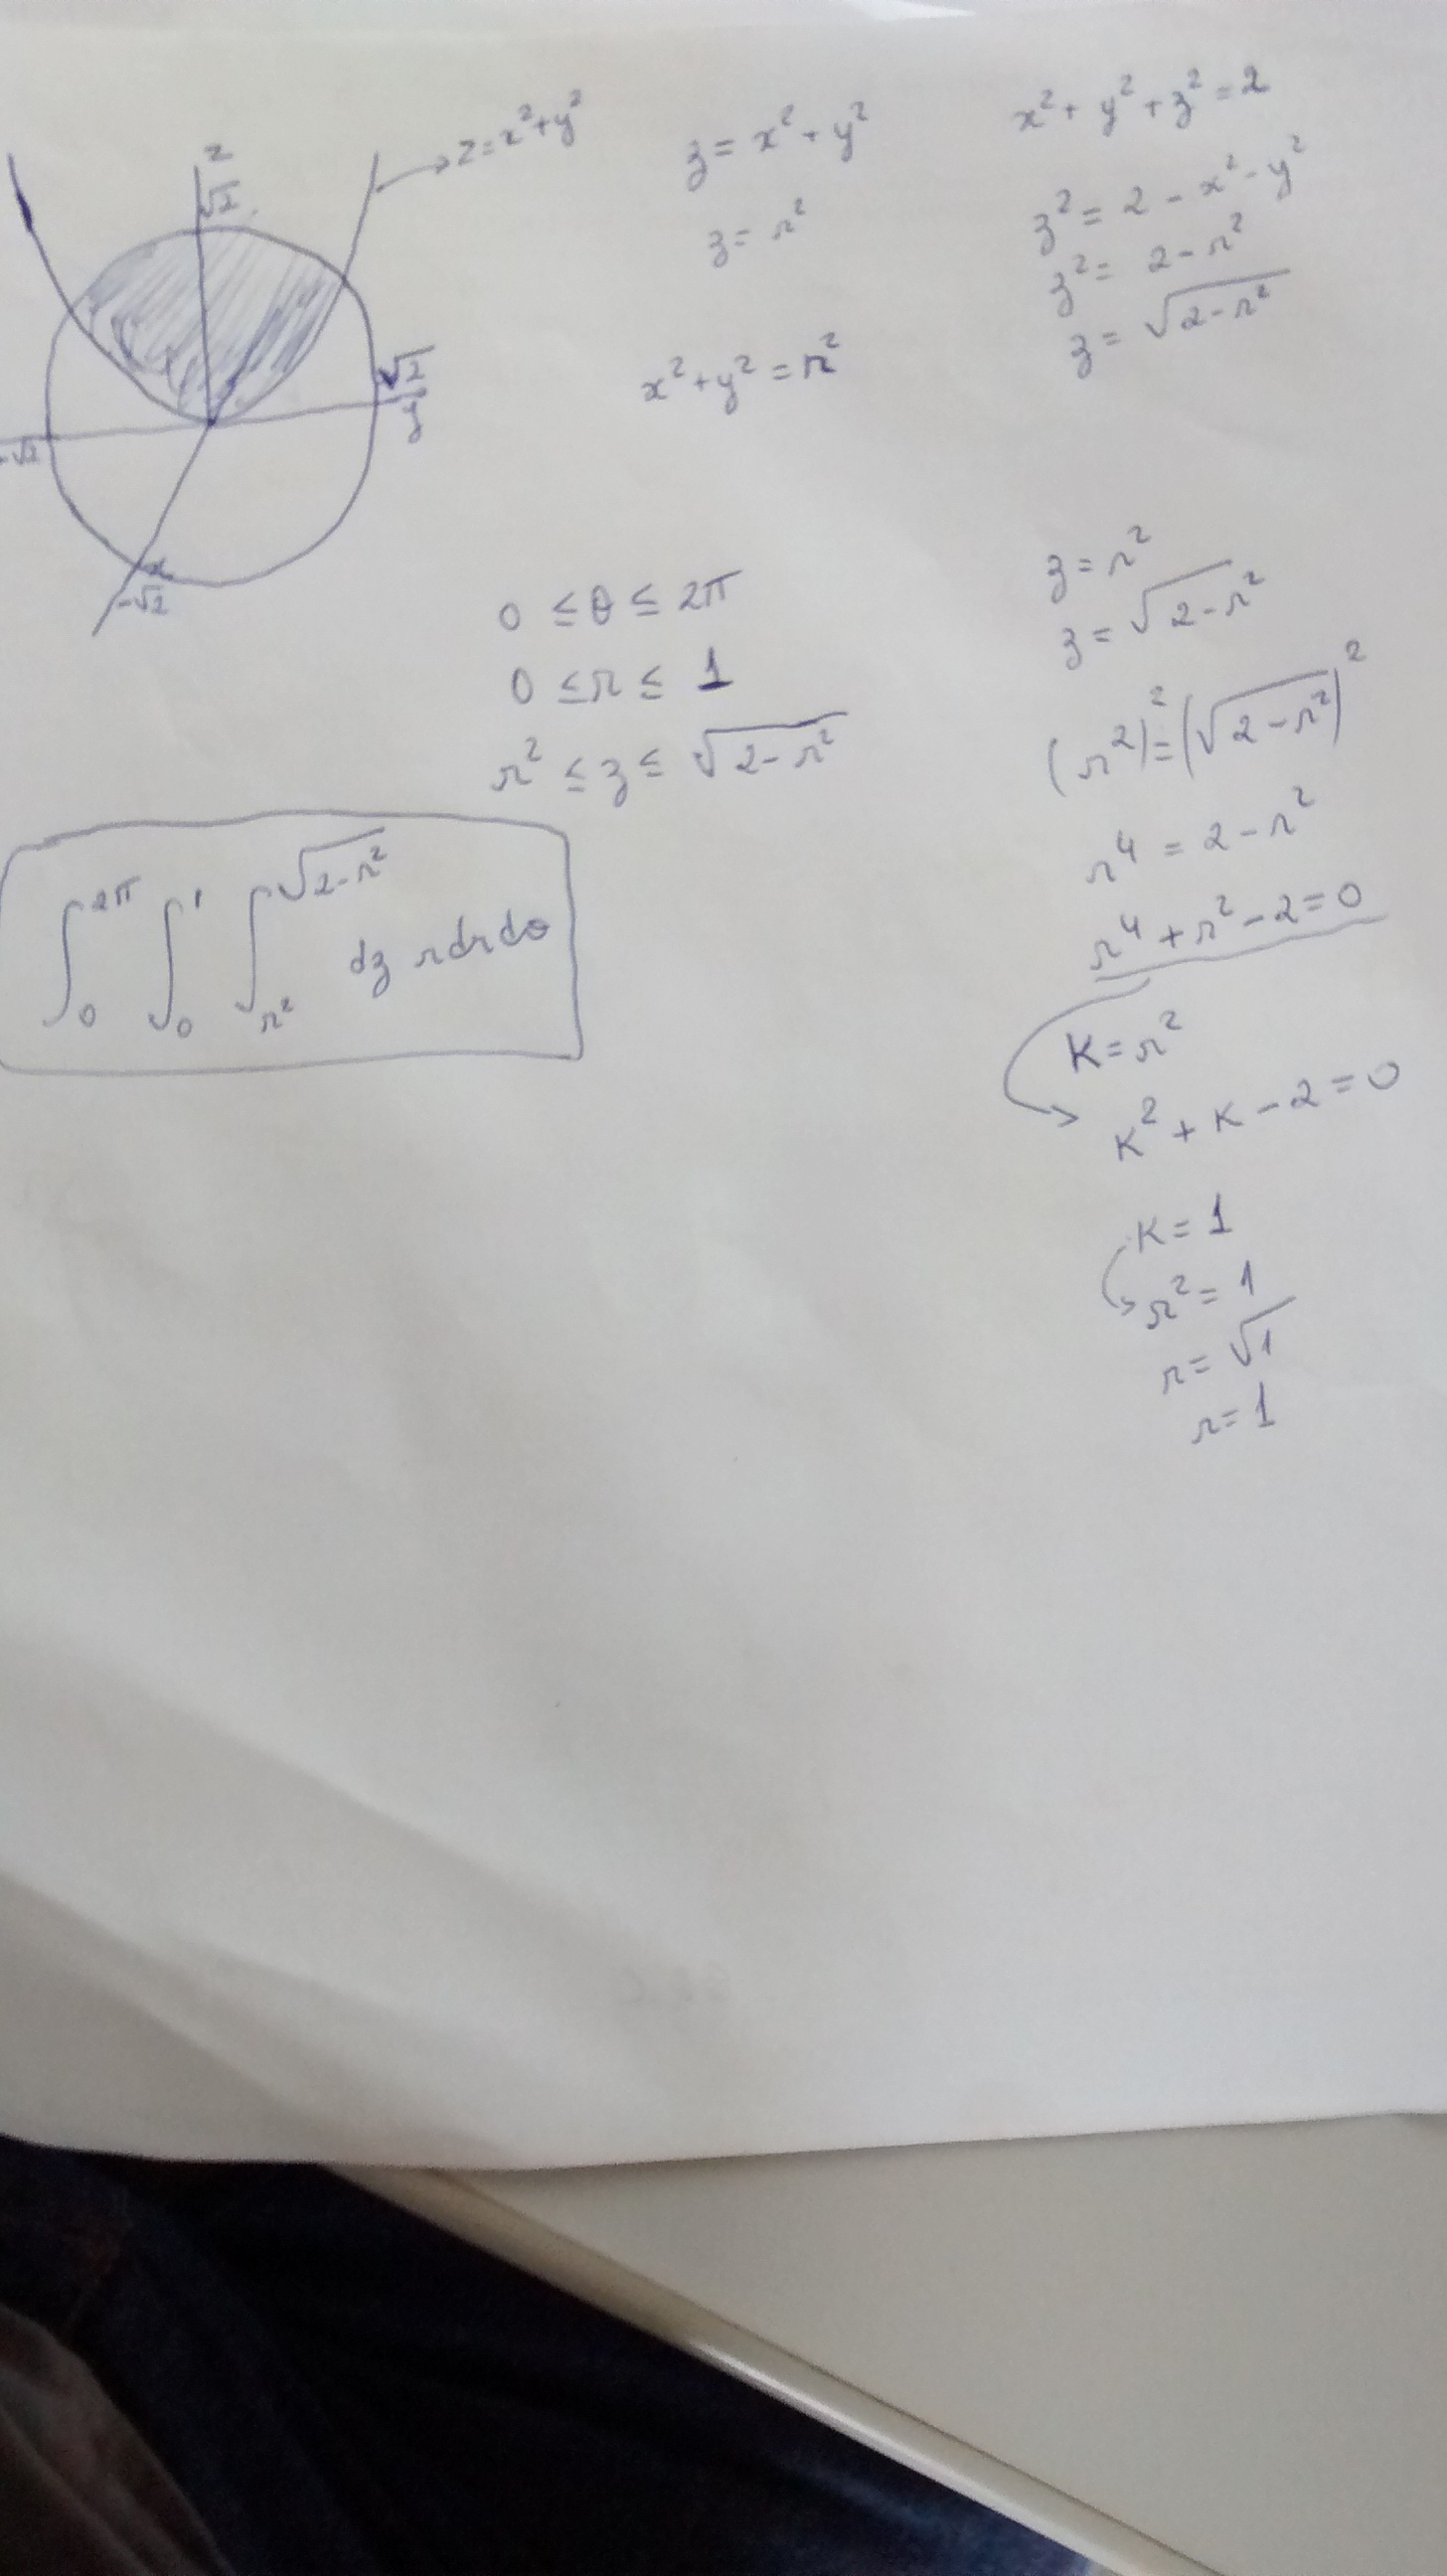 z
√2
z=x²+y²
√2
y
-√2
x
-√2
z = x² + y²
z = r²
x² + y² = r²
x² + y² + z² = 2
z² = 2 - x² - y²
z² = 2 - r²
z = √(2 - r²)
0 ≤ θ ≤ 2π
0 ≤ r ≤ 1
r² ≤ z ≤ √(2 - r²)
∫₀^2π ∫₀^1 ∫_r²^√(2-r²) dz r dr dθ
z = r²
z = √(2 - r²)
(r²)² = (√(2 - r²))²
r⁴ = 2 - r²
r⁴ + r² - 2 = 0
K = r²
K² + K - 2 = 0
K = 1
r² = 1
r = √1
r = 1